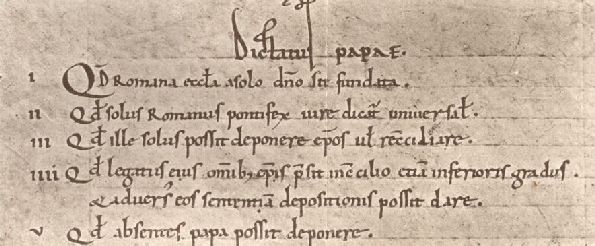 Dictatus papae.
I Qd Romana eccła a solo dño sit fundata.
II Qd solus Romanus pontifex iure dicat universał.
III Qd ille solus possit deponere epos uł recciliare.
IIII Qd legatus eius omib; epis psit in cilio etiā inferioris gradus.
& adversˢ eos sententiā depositionis possit dare.
V Qd absentes papa possit deponere.